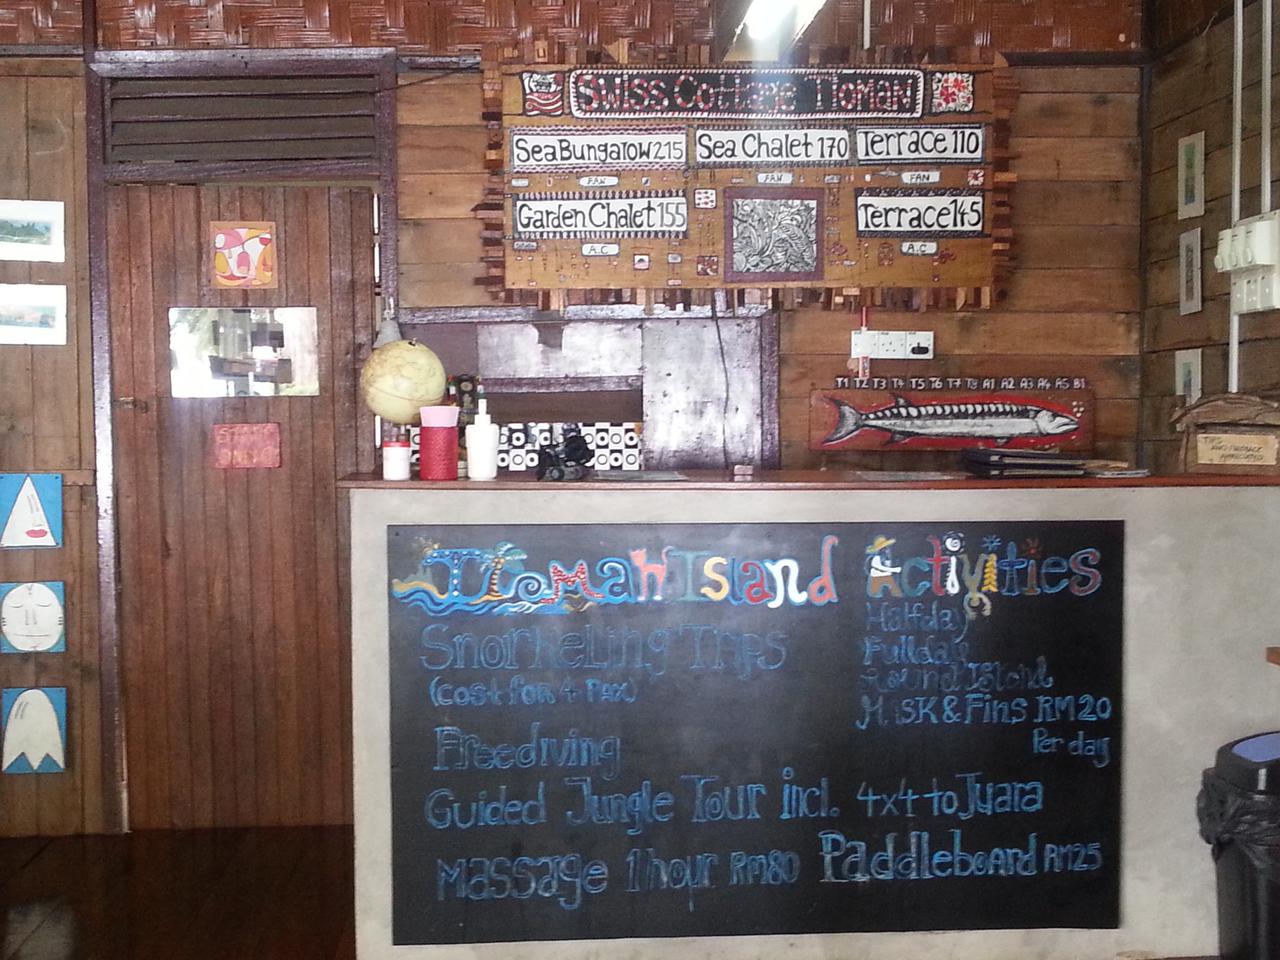 Swiss Cottage Tioman
SeaBungalow215
Sea Chalet 170
Terrace 110
FAN
FAN
FAN
Garden Chalet 155
Terrace 145
A.C
A.C
T1 T2 T3 T4 T5 T6 T7 T8 A1 A2 A3 A4 A5 B1
STAFF
ONLY
Tioman Island Activities
Snorkeling Trips
(cost for 4 pax)
Halfday
Fullday
Round Island
Mask & Fins RM 20
Per day
Freediving
Guided Jungle Tour incl. 4x4 to Juara
Massage 1 hour RM80 Paddleboard RM25